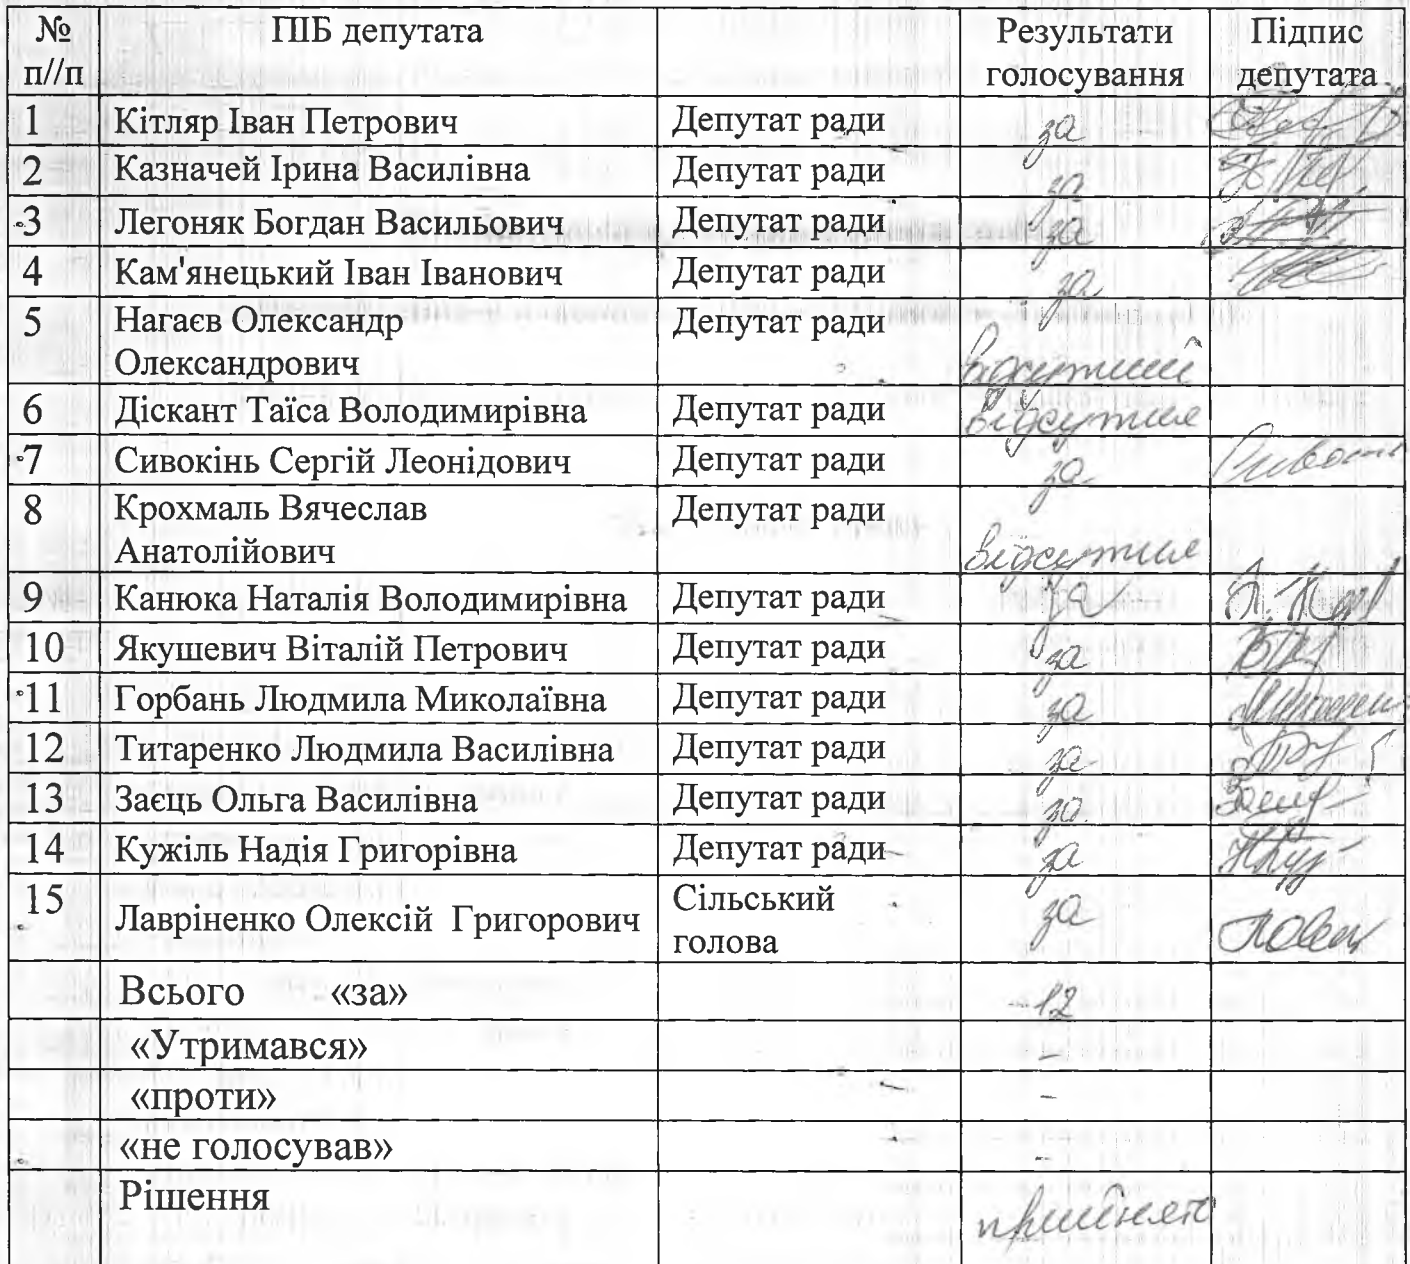 № ПІБ депутата Результати Підпис
п//п голосування депутата
1 Кітляр Іван Петрович Депутат ради за
2 Казначей Ірина Василівна Депутат ради за
3 Легоняк Богдан Васильович Депутат ради за
4 Кам'янецький Іван Іванович Депутат ради за
5 Нагаєв Олександр Депутат ради
Олександрович відсутній
6 Діскант Таїса Володимирівна Депутат ради відсутня
7 Сивокінь Сергій Леонідович Депутат ради за
8 Крохмаль Вячеслав Депутат ради
Анатолійович
9 Канюка Наталія Володимирівна Депутат ради за
10 Якушевич Віталій Петрович Депутат ради за
11 Горбань Людмила Миколаївна Депутат ради за
12 Титаренко Людмила Василівна Депутат ради за
13 Заєць Ольга Василівна Депутат ради за
14 Кужіль Надія Григорівна Депутат ради за
15 Лавріненко Олексій Григорович Сільський за
голова
Всього «за» -12
«Утримався» -
«проти» -
«не голосував» -
Рішення прийнято